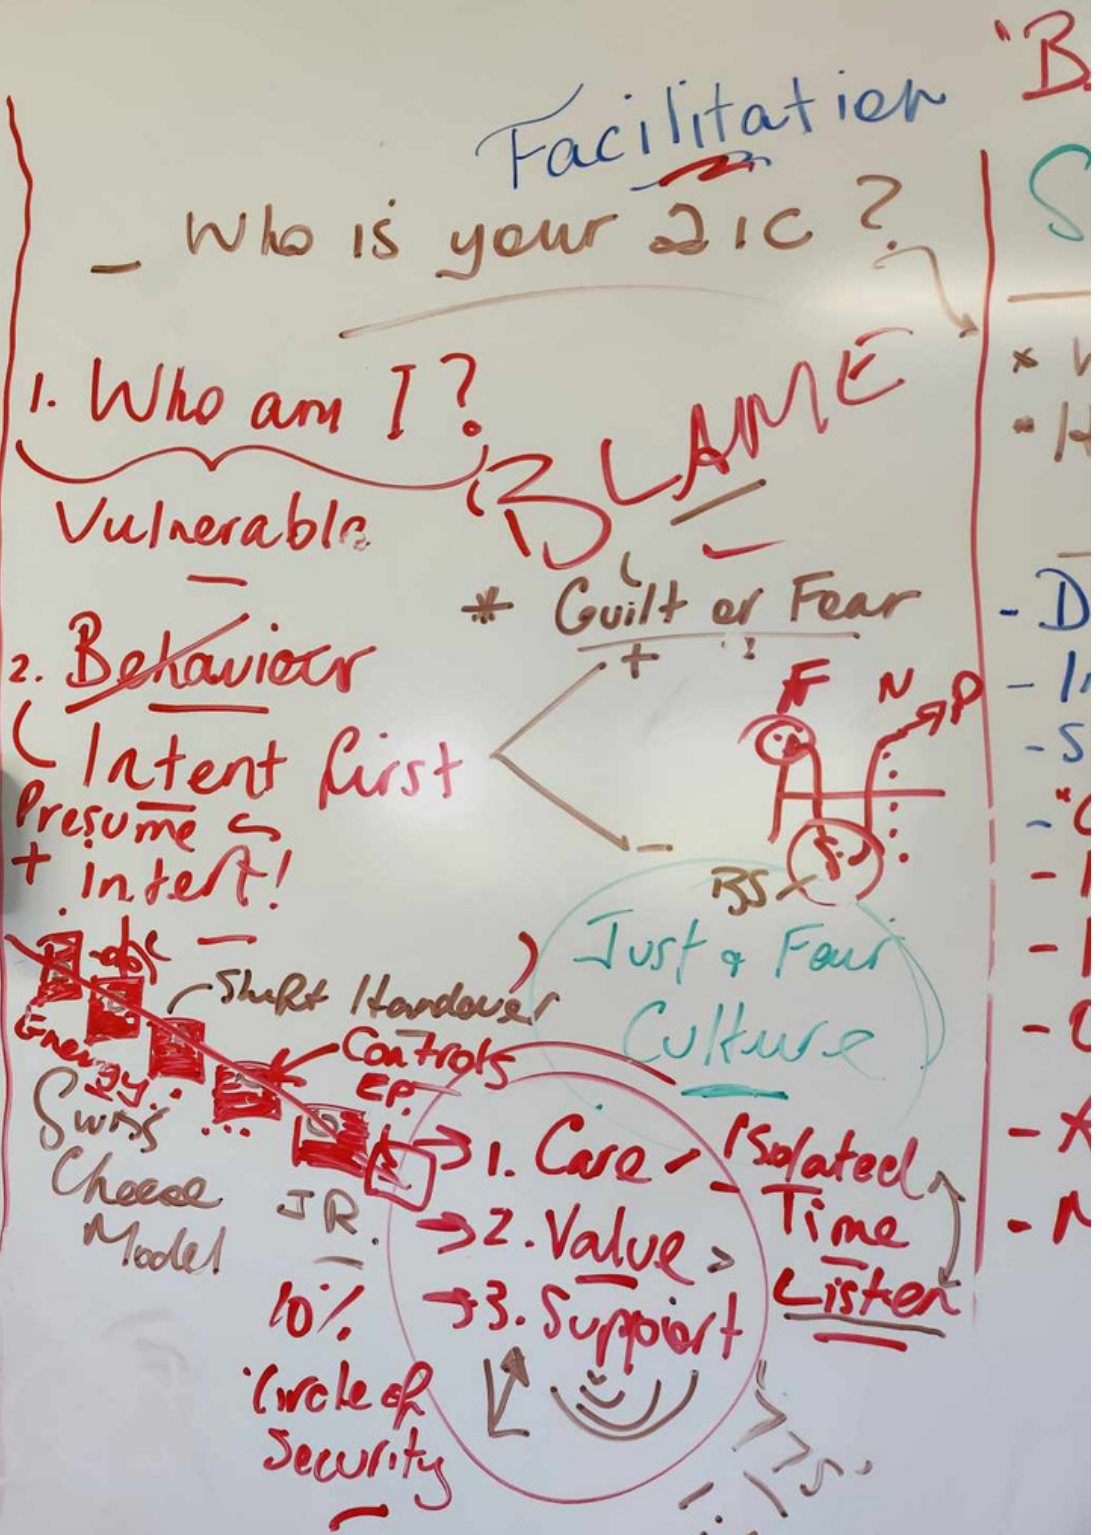 Facilitation
- Who is your 2IC?
1. Who am I?
Vulnerable
BLAME
* Guilt or Fear
+
2. Behaviour
Intent first
Presume
+ intent!
-
F N P
BS
Just & Fair
Culture
Shift Handover
Energy
Controls
Swiss
Cheese
Model
JR.
10%
Circle of
Security
1. Care - Isolated
Time
2. Value >
Listen
3. Support
"B
S
- D